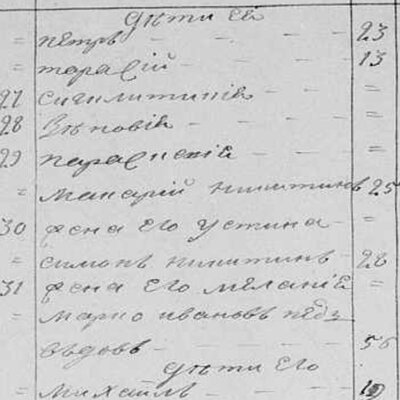 дѣти Её
= пётръ - - - - 23
= тарасій - - - 13
27 сигклитикія - - =
28 Зѣновія - - - =
29 параскевія - - =
= макарій никитинъ 25
30 Жена Его Устина - =
= симонъ никитинъ - 28
31 Жена Его меланія =
= марко ивановъ
вдовъ - - - - 56
дѣти Его
= михаилъ - - - 19